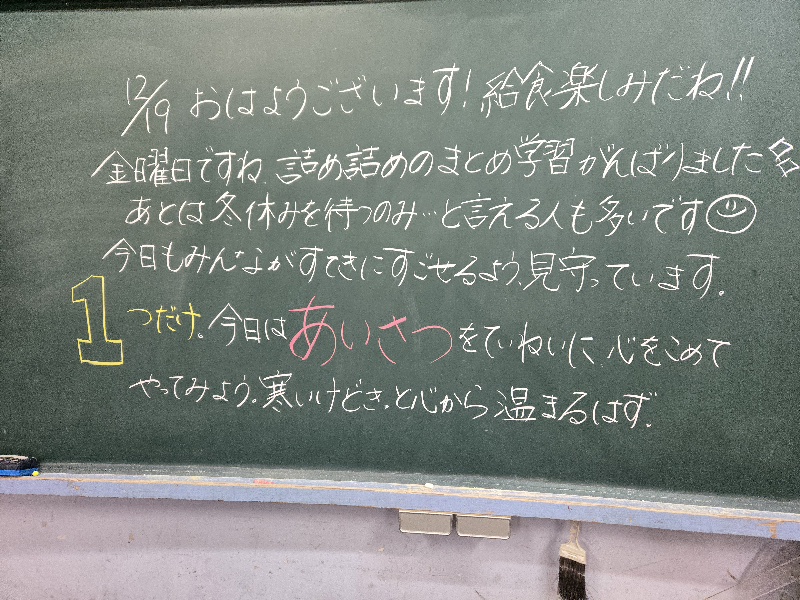 12/19 おはようございます! 給食楽しみだね!!
金曜日ですね、詰め詰めのまとめ学習がんばりました
あとは冬休みを待つのみ…と言える人も多いです
今日もみんながすてきにすごせるよう、見守っています。
1つだけ。今日はあいさつをていねいに、心をこめて
やってみよう。寒いけどき。と心から温まるはず。